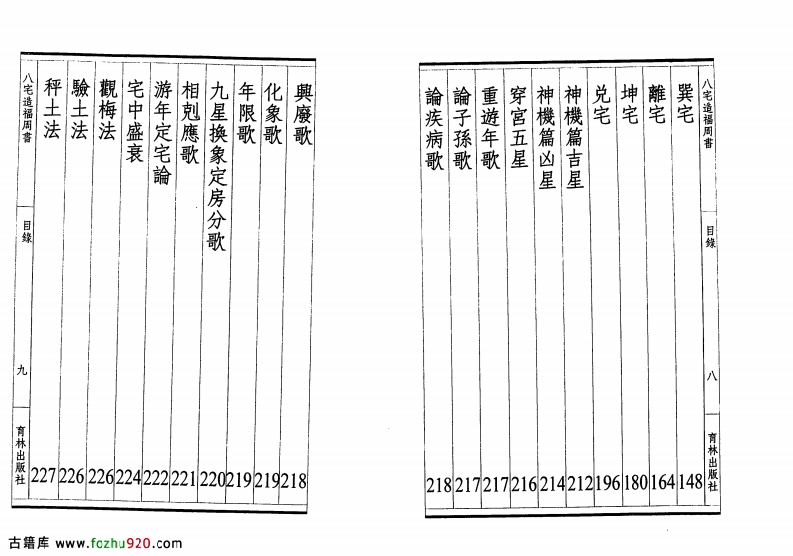 八宅造福周書
目錄
八
育林出版社
巽宅 148
離宅 164
坤宅 180
兌宅 196
神機篇吉星 212
神機篇凶星 214
穿宮五星 216
重遊年歌 217
論子孫歌 217
論疾病歌 218
興廢歌 218
化象歌 219
年限歌 219
九星換象定房分歌 220
相剋應歌 221
游年定宅論 222
宅中盛衰 224
觀梅法 226
驗土法 226
秤土法 227
八宅造福周書
目錄
九
育林出版社
古籍库 www.fozhu920.com